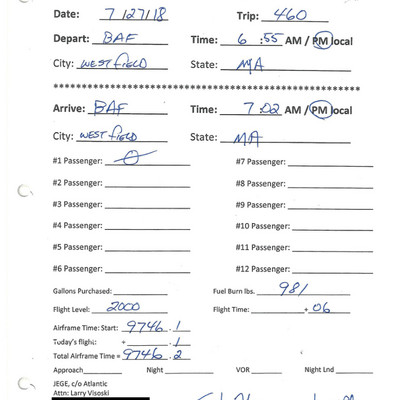 Date: 7/27/18 Trip: 460
Depart: BAF Time: 6 :55 AM / PM local
City: WESTFIELD State: MA
************************************************************
Arrive: BAF Time: 7:02 AM / PM local
City: WESTFIELD State: MA
#1 Passenger: 0 #7 Passenger:
#2 Passenger: #8 Passenger:
#3 Passenger: #9 Passenger:
#4 Passenger: #10 Passenger:
#5 Passenger: #11 Passenger:
#6 Passenger: #12 Passenger:
Gallons Purchased: Fuel Burn lbs. 981
Flight Level: 2000 Flight Time: + 06
Airframe Time: Start: 9746.1
Today's flight: + .1
Total Airframe Time = 9746.2
Approach Night VOR Night Lnd
JEGE, c/o Atlantic
Attn: Larry Visoski